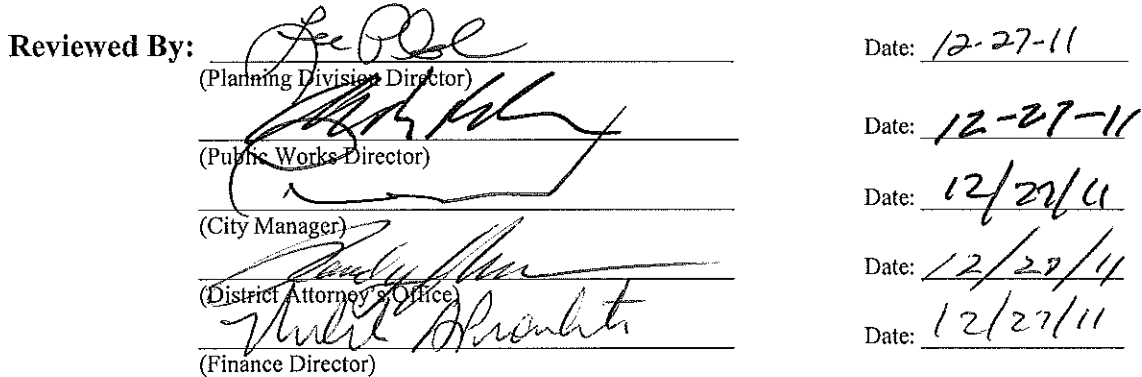 Reviewed By: Date: 12-27-11
(Planning Division Director)
Date: 12-27-11
(Public Works Director)
Date: 12/27/11
(City Manager)
Date: 12/27/11
(District Attorney's Office)
Date: 12/27/11
(Finance Director)